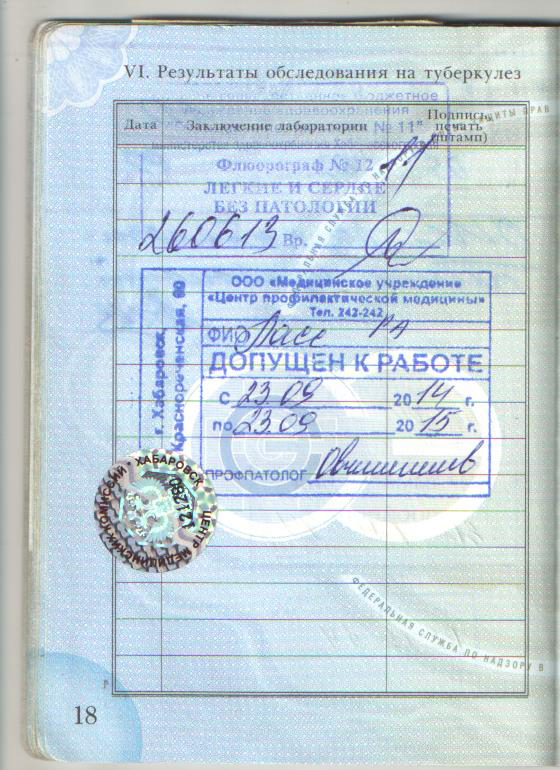 VI. Результаты обследования на туберкулез
Дата
Заключение лаборатории
Подпись,
печать
(штамп)
№ 11"
Флюорограф № 12
ЛЕГКИЕ И СЕРДЦЕ
БЕЗ ПАТОЛОГИИ
260613 Вр.
ООО «Медицинское учреждение»
«Центр профилактической медицины»
Тел. 242-242
г. Хабаровск,
Краснореченская, 90
ФИО
ДОПУЩЕН К РАБОТЕ
с 23.09 2014 г.
по 23.09 2015 г.
ПРОФПАТОЛОГ
ХАБАРОВСК • ЦЕНТР МЕДИЦИНСКИХ КОМИССИЙ •
ФЕДЕРАЛЬНАЯ СЛУЖБА ПО НАДЗОРУ В
18